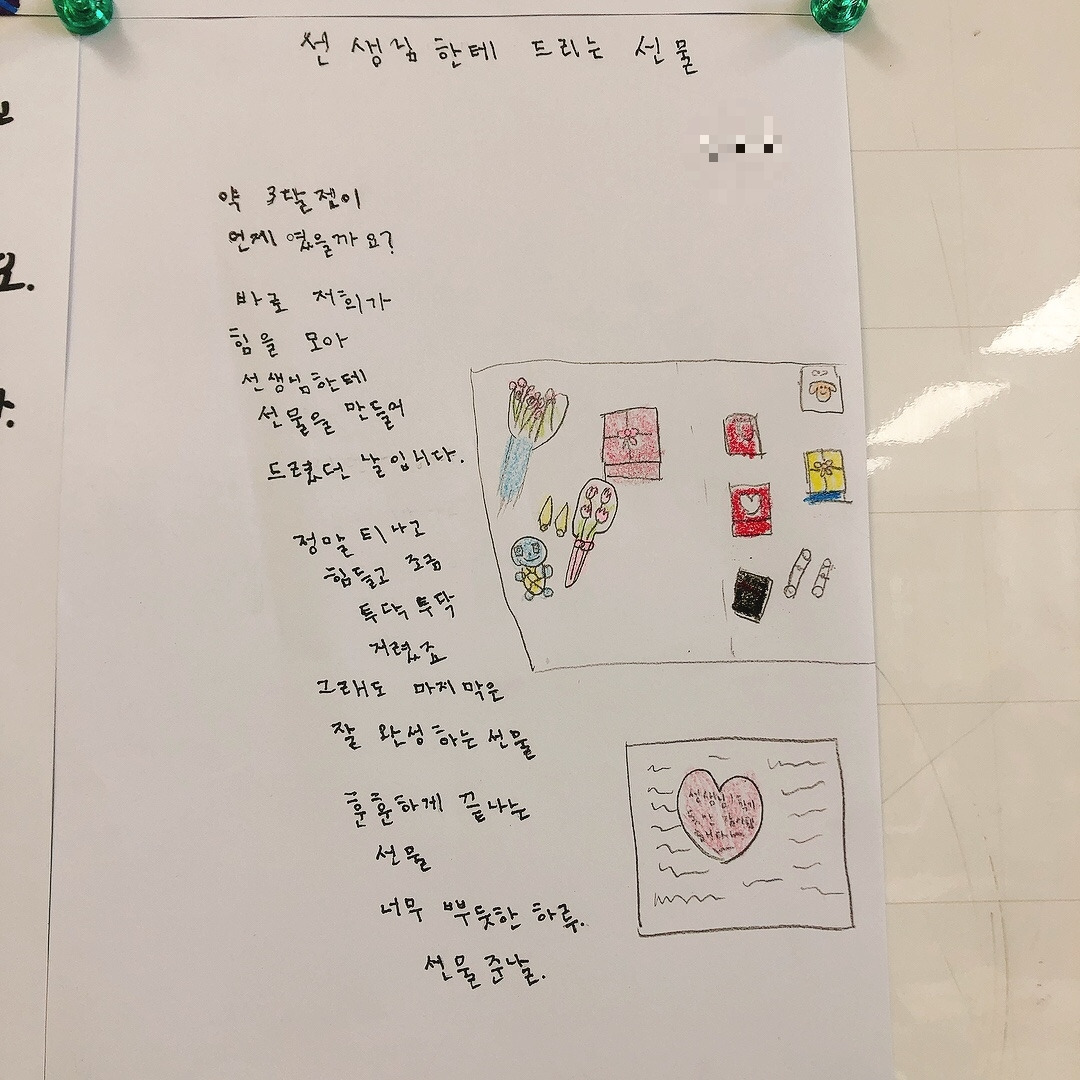 선생님한테 드리는 선물
약 3달전이
언제 였을까요?
바로 저희가
힘을 모아
선생님한테
선물을 만들어
드렸던 날입니다.
정말 티나고
힘들고 조금
투닥투닥
거렸죠
그래도 마지막은
잘 완성하는 선물
훈훈하게 끝나는
선물
너무 뿌듯한 하루.
선물 준 날.
고
요.
선생님 1학기
동안 감사합